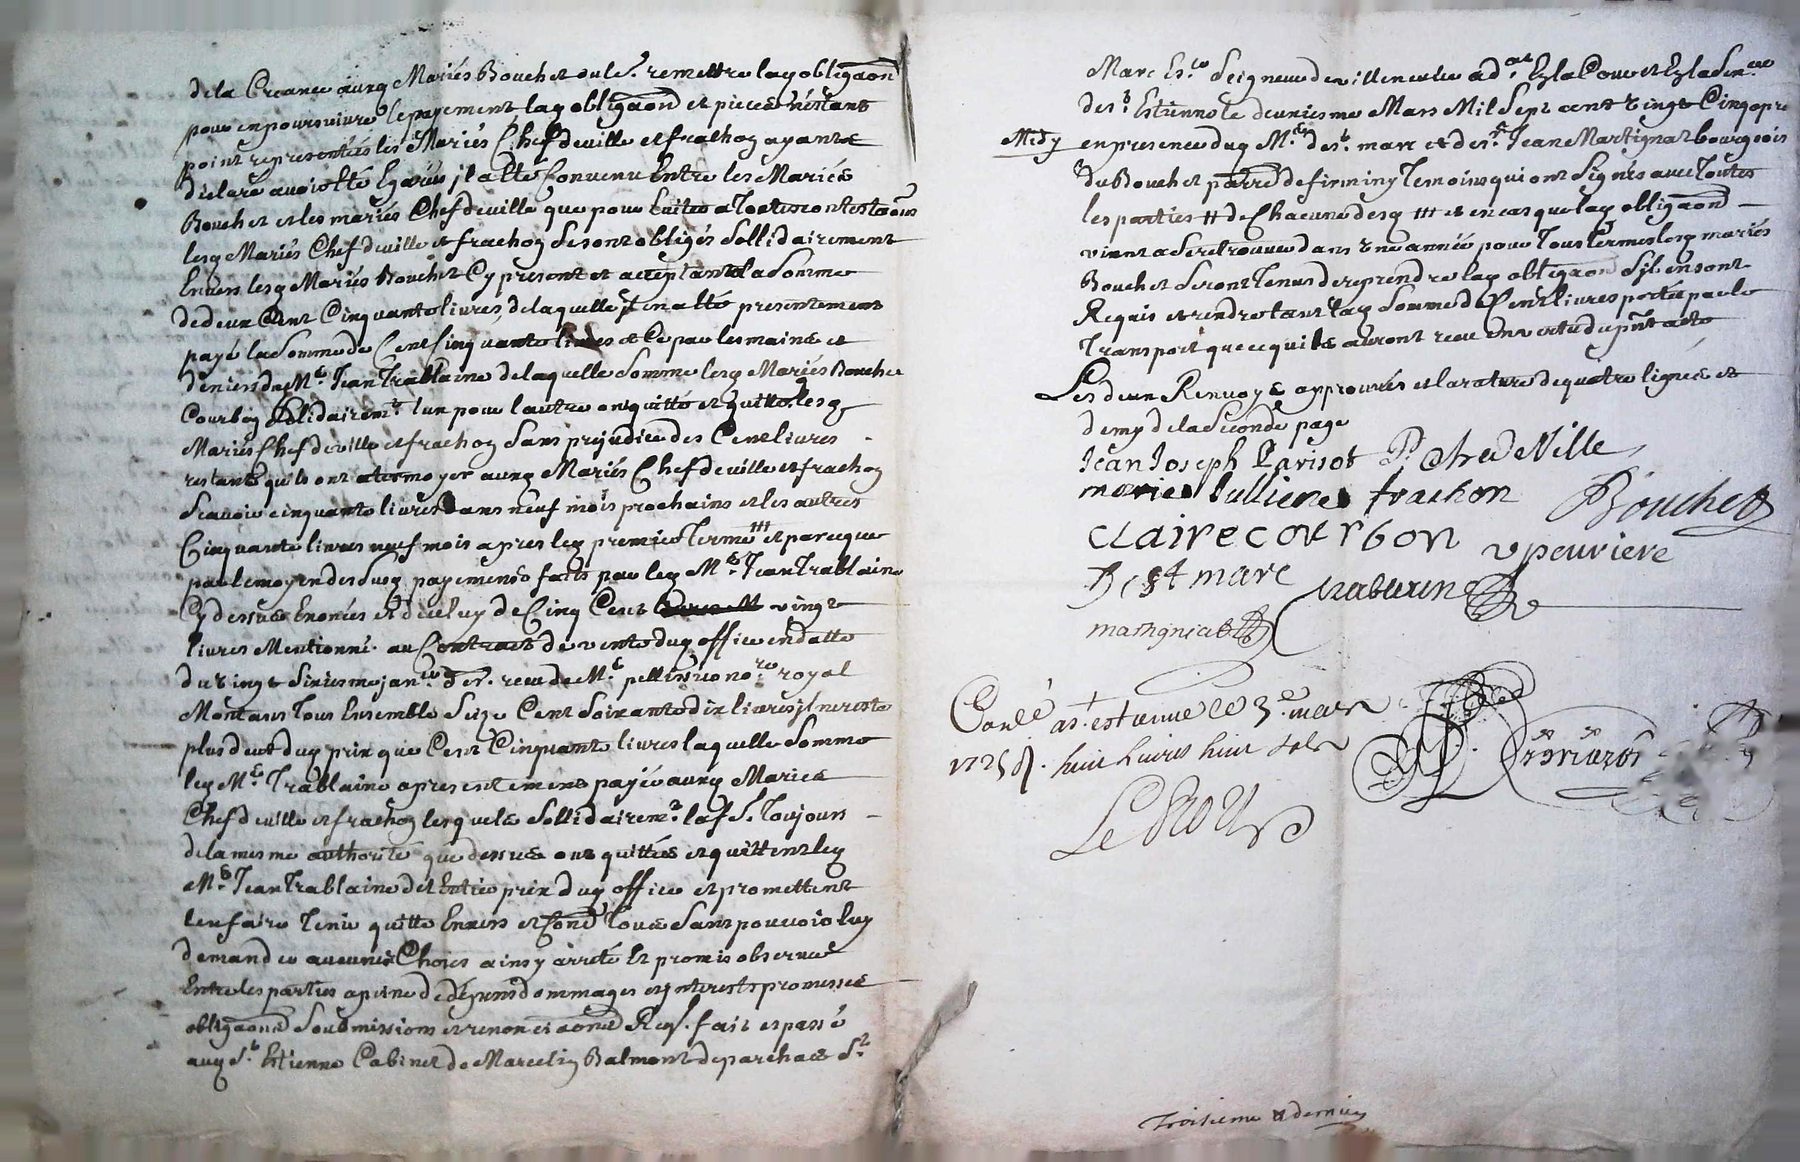 de la Creance auxq Mariés Bouchet dud Sr. remettre lad obligaon
pour en poursuivre le payement lad obligaond et pieces n'estant
point representées les Mariés Chefdeville et frachon ayants
déclaré avoir été Egarés il a été Convenu Entre les Mariés
Bouchet et les mariés Chefdeville que pour Eviter a Toutes contestaons
lesq Mariés Chefdeville et frachon se sont obligés sollidairement
Envers lesq Mariés Bouchet Cy present et acceptant la somme
de deux Cent Cinquante livres, de laquelle il en a été presentement
payé la somme de Cent Cinquante livres et Ce par les mains et
deniers de Me. Jean Trablaine de laquelle somme lesq Mariés Bouchet
Courbon sollidairemt. l'un pour l'autre ont quitté et quitte lesq
Mariés Chefdeville et frachon sans prejudice des Cent livres
restants quils ont atermoyer auxq Mariés Chefdeville et frachon
scavoir cinquante livres dans neuf mois prochains et les autres
Cinquante livres neuf mois apres led premier Terme ttt et parceque
par le moyen des susq payements faits par led Me. Jean Trablaine
Cy dessus Enoncés et de celuy de Cinq Cent vingt
livres Mentionné au Contract de vente dud office en datte
du vingt sixiesme janer. der. receu de Me. pellissier nore. royal
Montant Tous Ensemble seize Cent soixante dix livres il ne reste
plus deub dud prix que Cent Cinquante livres laquelle somme
led Me. Trablaine a presentement payée auxq Mariés
Chefdeville et frachon lesquels sollidairemt. lad S. Toujours
de la mesme authorité que dessus ont quittés et quittent led
Me. Jean Trablaine de l'Entier prix dud office et promettent
l'en faire Tenir quitte Envers et Cond Tous sans pouvoir luy
demander aucunes Choses ainsy arrêté Et promis observer
Entre les parties a peine de dépens dommages et interests promesses
obligaons soubmissions et renonciaons Reqs. fait et passé
auq St. Estienne Cabinet de Marcelin Balmont de parchas St.
Marc Esr. Seigneur de villeneuve adat. En la Cour et En la Senée
de St. Estienne le deuxiesme Mars Mil Sept cent vingt Cinq apre
Midy en presence dud Me. de St. marc et de sr. Jean Martignat bourgeois
du Bouchet parre. de firminy Temoins qui ont signés avec Toutes
les parties tt de Chacune desq ttt et en cas que lad obligaond
vient a se retrouver dans une année pour Tous termes lesq mariés
Bouchet seront Tenus de reprendre lad obligaon s'il en sont
Requis et rendre tant lad somme de Cent livres portée par le
Transport que ce quils auront receu en vertu du pnt acte
Les deux Renvoys approuvés et la rature de quatre lignes et
demy de la seconde page
Jean Joseph Parisot P Chedeville
marie Jullienes frachon Bouchet
claire courbon vpeuriere
De St marc trablaine
martignat
Conlé a St. estienne le 3e. mars
1725 R. huit livres huit sols
Le Roy
Troisieme & dernier